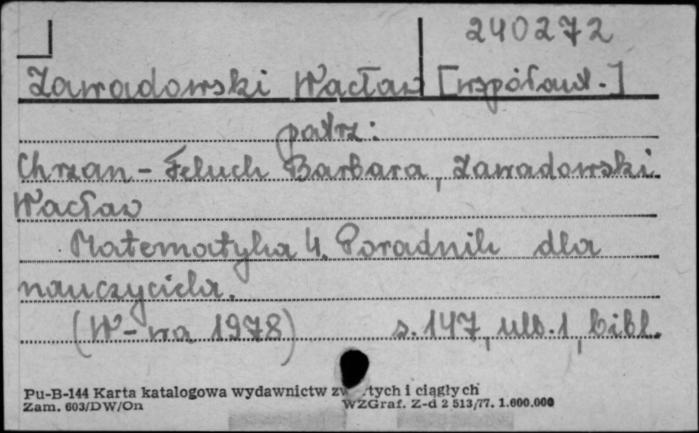 240272
Zawadowski Wacław [współaut.]
patrz:
Chrzan-Feluch Barbara, Zawadowski
Wacław
Matematyka 4. Poradnik dla
nauczyciela.
(W-wa 1978) s. 147, ulb. 1, bibl.
Pu-B-144 Karta katalogowa wydawnictw tych i ciągłych
Zam. 603/DW/On WZGraf. Z-d 2 513/77. 1.600.000